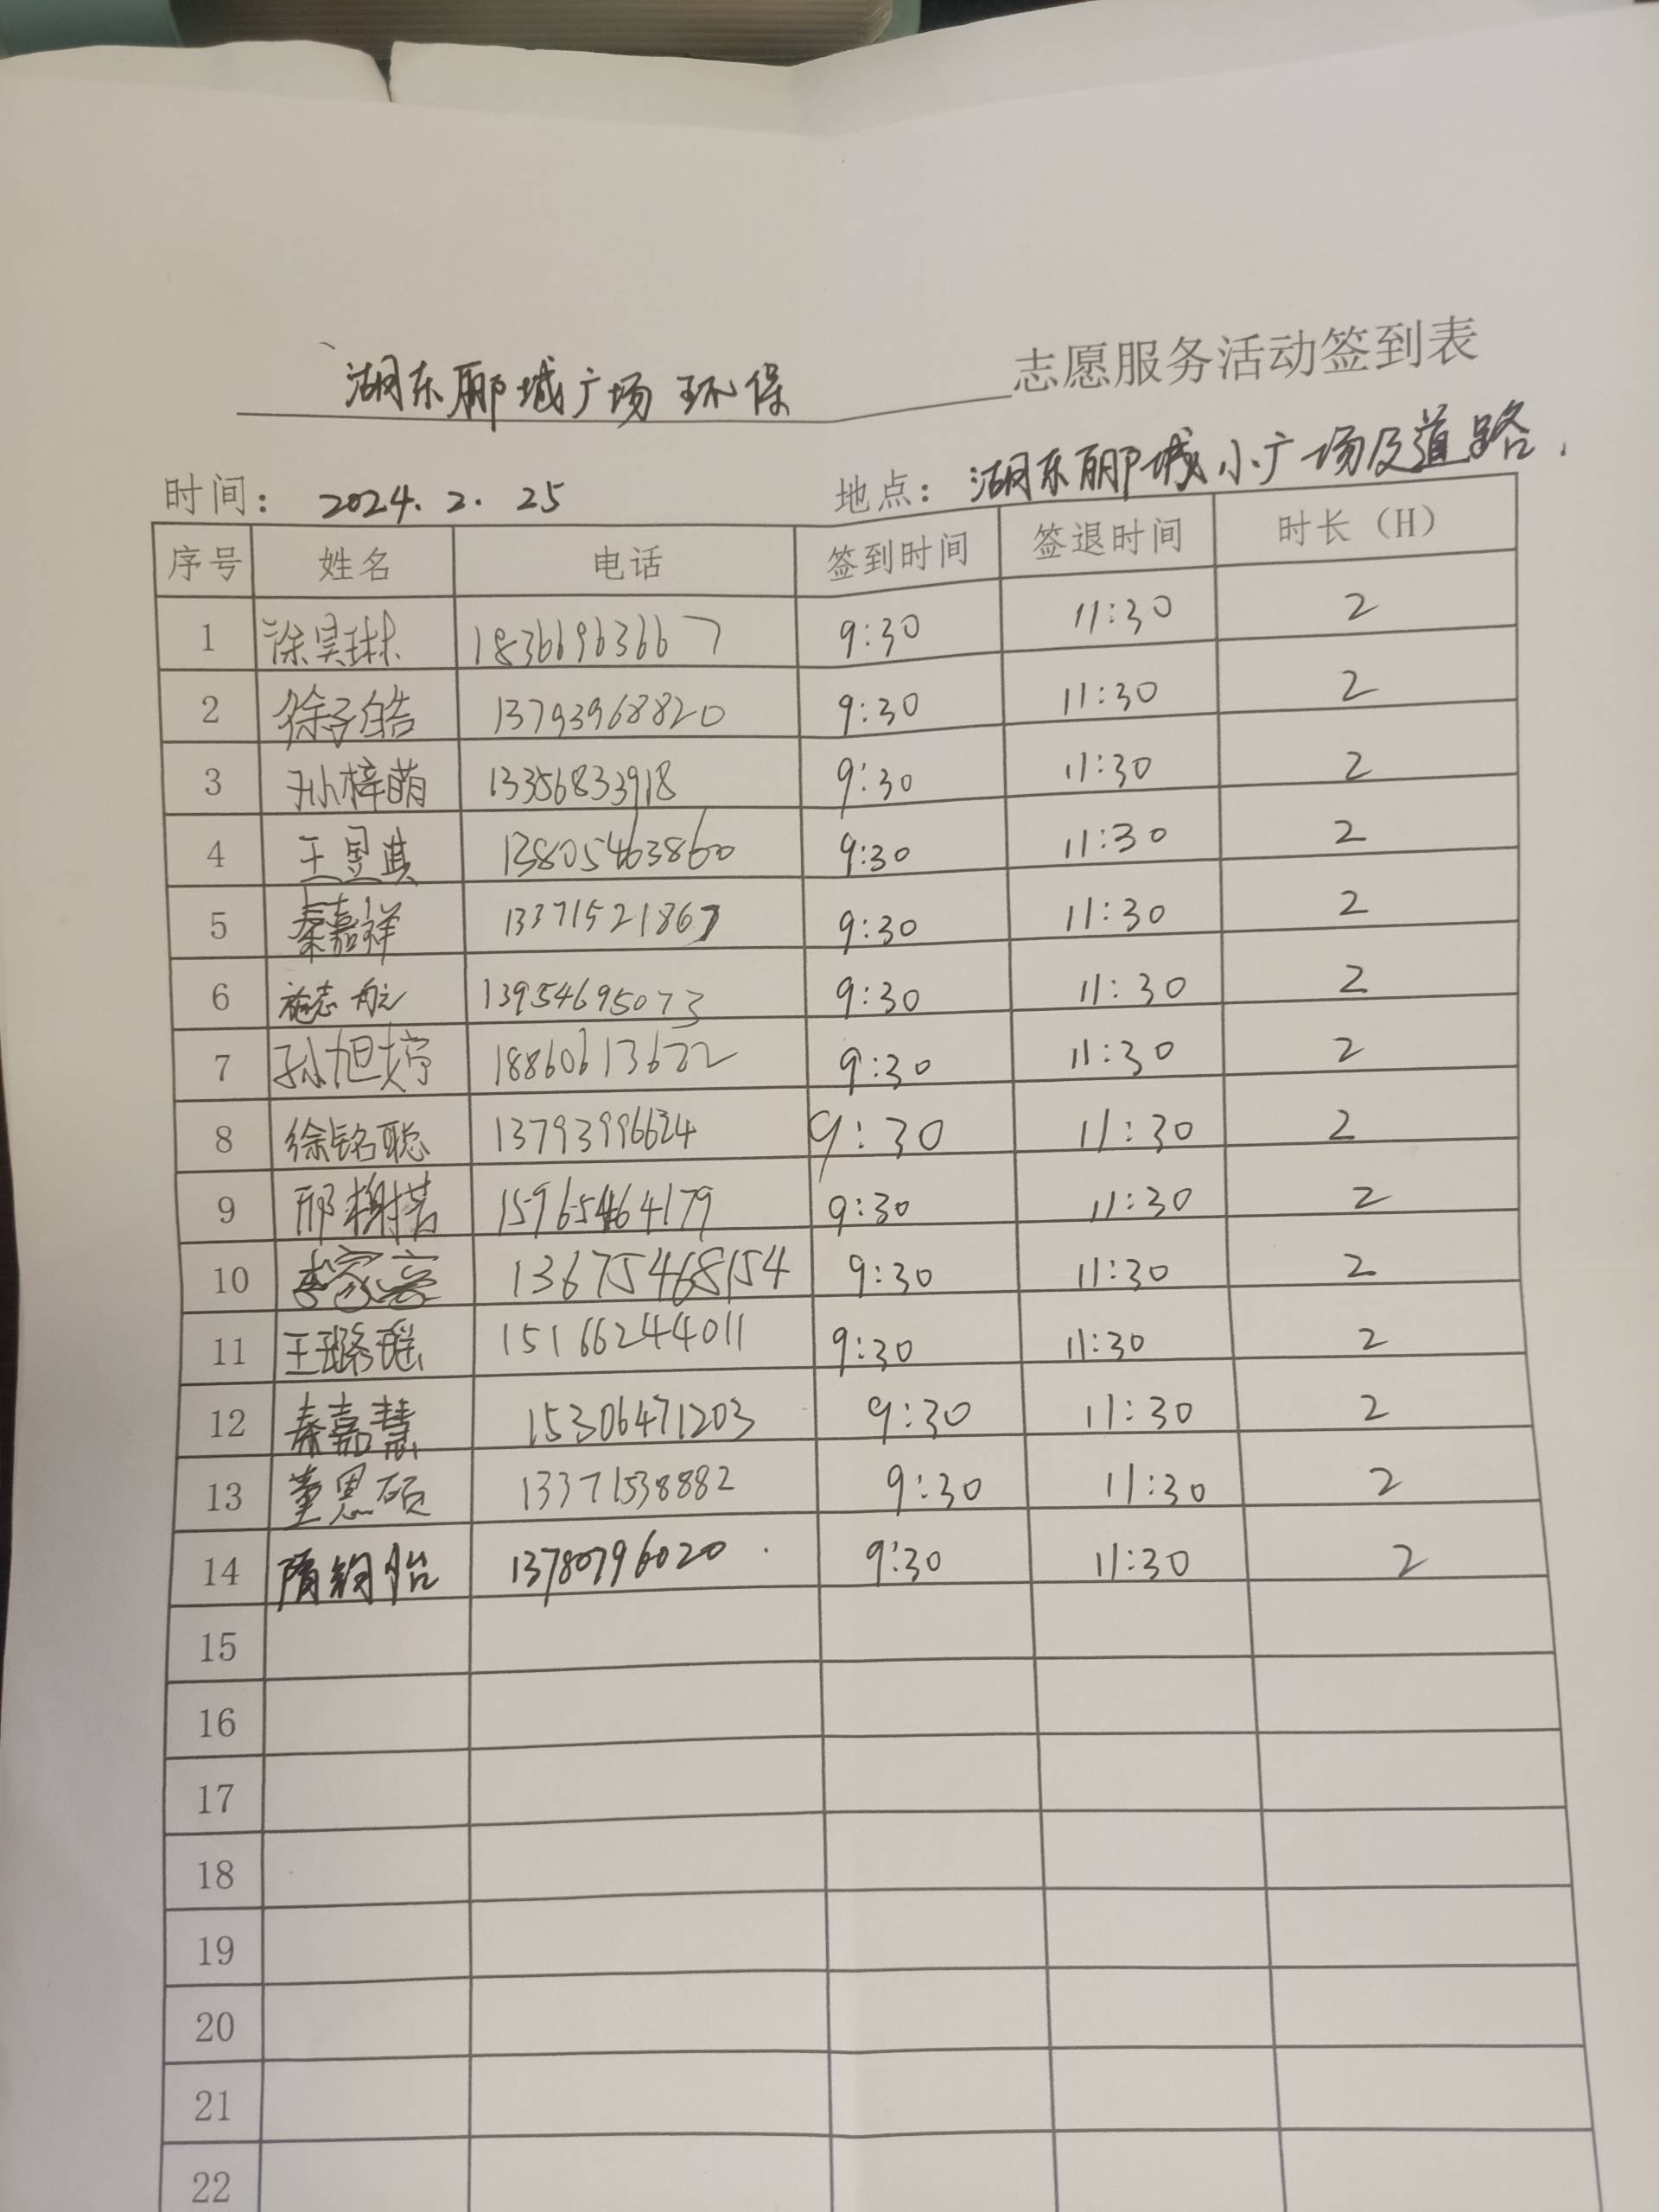 湖东郦城广场环保 志愿服务活动签到表
时间: 2024.2.25 地点: 湖东郦城小广场及道路.
序号 姓名 电话 签到时间 签退时间 时长(H)
1 徐昊琳 18366963667 9:30 11:30 2
2 徐子皓 13793968820 9:30 11:30 2
3 孙梓萌 13356833918 9:30 11:30 2
4 王昱淇 13805463860 9:30 11:30 2
5 秦嘉祥 13371521867 9:30 11:30 2
6 施志航 13954695073 9:30 11:30 2
7 孙旭婷 18860613622 9:30 11:30 2
8 徐铭聪 13793996624 9:30 11:30 2
9 邢榭若 15965464179 9:30 11:30 2
10 13675468154 9:30 11:30 2
11 王璐瑶 15166244011 9:30 11:30 2
12 秦嘉慧 15306471203 9:30 11:30 2
13 董思硕 13371538882 9:30 11:30 2
14 隋钧怡 13780796020 9:30 11:30 2
15
16
17
18
19
20
21
22